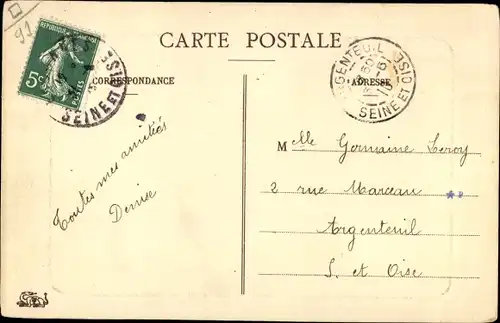 91
CARTE POSTALE
RÉPUBLIQUE FRANÇAISE
5c
POSTES
SEINE ET OISE
ARGENTEUIL
SEINE ET OISE
CORRESPONDANCE
ADRESSE
Toutes mes amitiés
Denise
Melle Germaine Leroy
2 rue Marceau
Argenteuil
S. et Oise